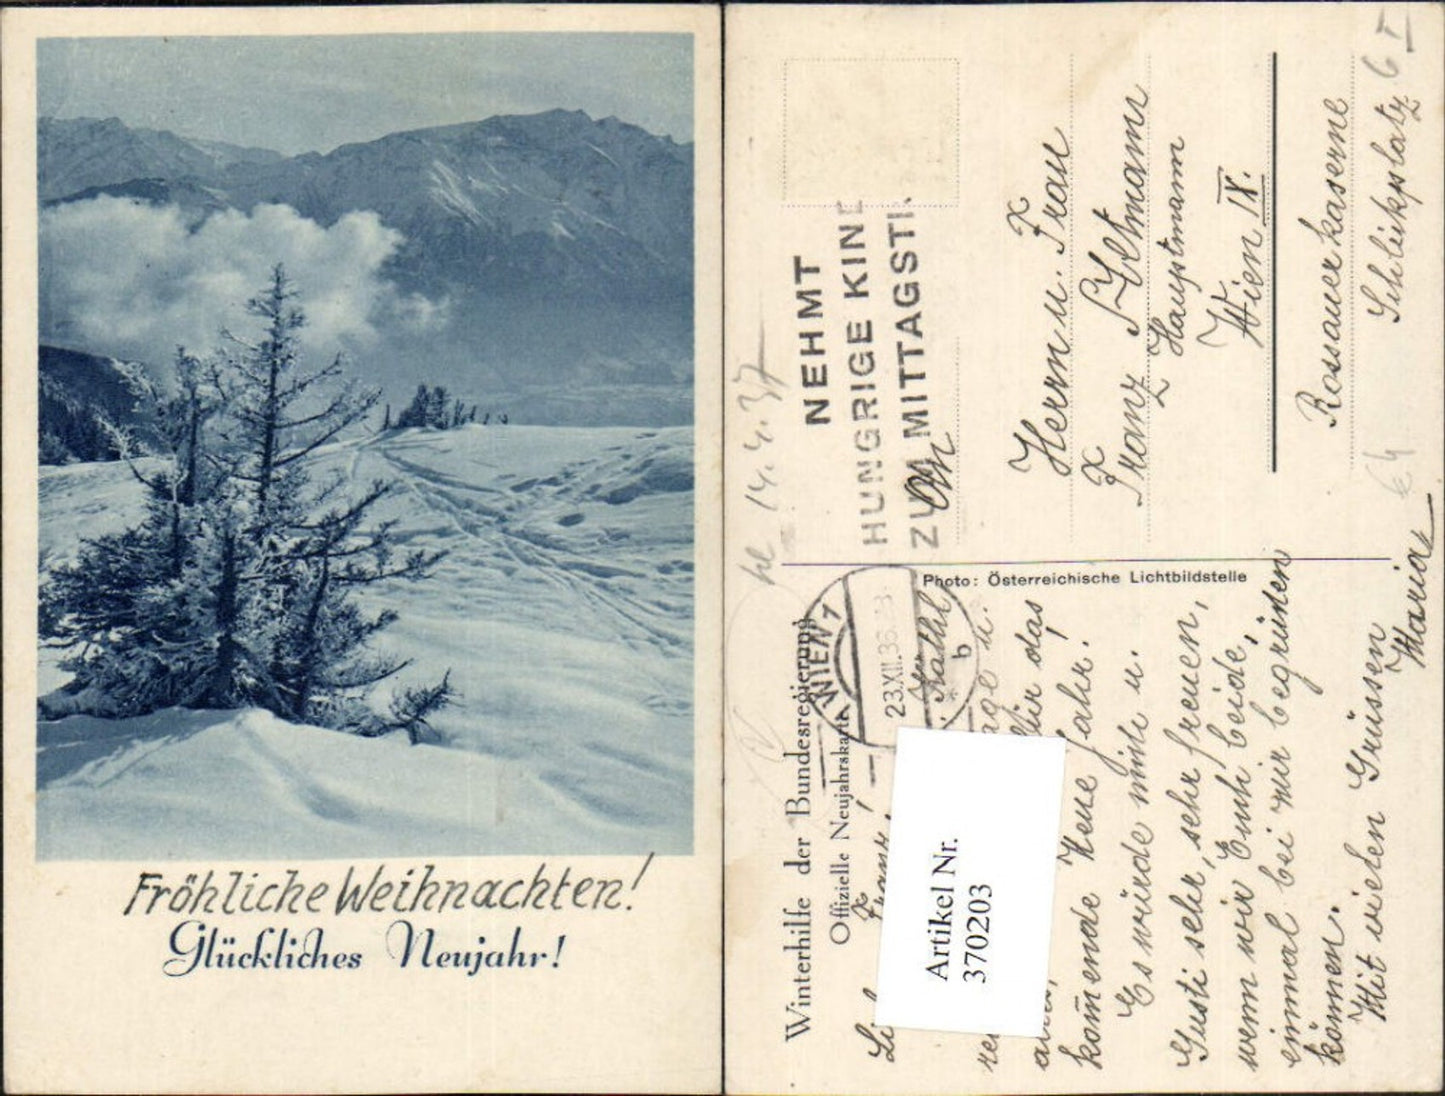 Fröhliche Weihnachten!
Glückliches Neujahr!
NEHMT
HUNGRIGE KIN
ZUM MITTAGSTI
An
Herrn u. Frau
Franz
Hauptmann
Wien IX.
Rossauerkaserne
Schlickplatz 6
14.4.37
Photo: Österreichische Lichtbildstelle
WIEN 1
23.XII.36
b
Winterhilfe der Bundesregierung
Offizielle Neujahrskarte
Artikel Nr.
370203
u.
das
kom̄ende Neue Jahr!
Es würde mich u.
Gusti sehr, sehr freuen,
wenn wir Euch beide,
einmal bei mir begrüßen
können.
Mit vielen Grüssen
Maria